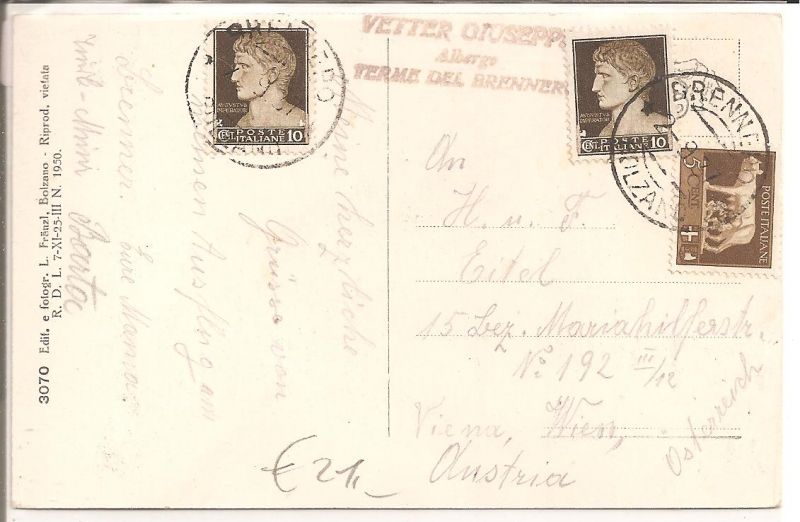 3070 Edit. e fotogr. L. Fränzl, Bolzano - Riprod. vietata
R. D. L. 7-XI-25-III N. 1950.
VETTER GIUSEPPE
Albergo
TERME DEL BRENNERO
BRENNERO
BOLZANO
AVGVSTVS
IMPERATOR
CENT. POSTE
ITALIANE 10
AVGVSTVS
IMPERATOR
CENT. POSTE
ITALIANE 10
BRENNERO
BOLZANO
5 CENT
POSTE ITALIANE
Meine herzliche
Grüsse von
einen Ausflug am
Brenner. Eure Mama
An
H. u. F.
Eitel
15 Bez. Mariahilferstr.
No 192 III/12
Viena, Wien,
Austria
Österreich
€ 2,-